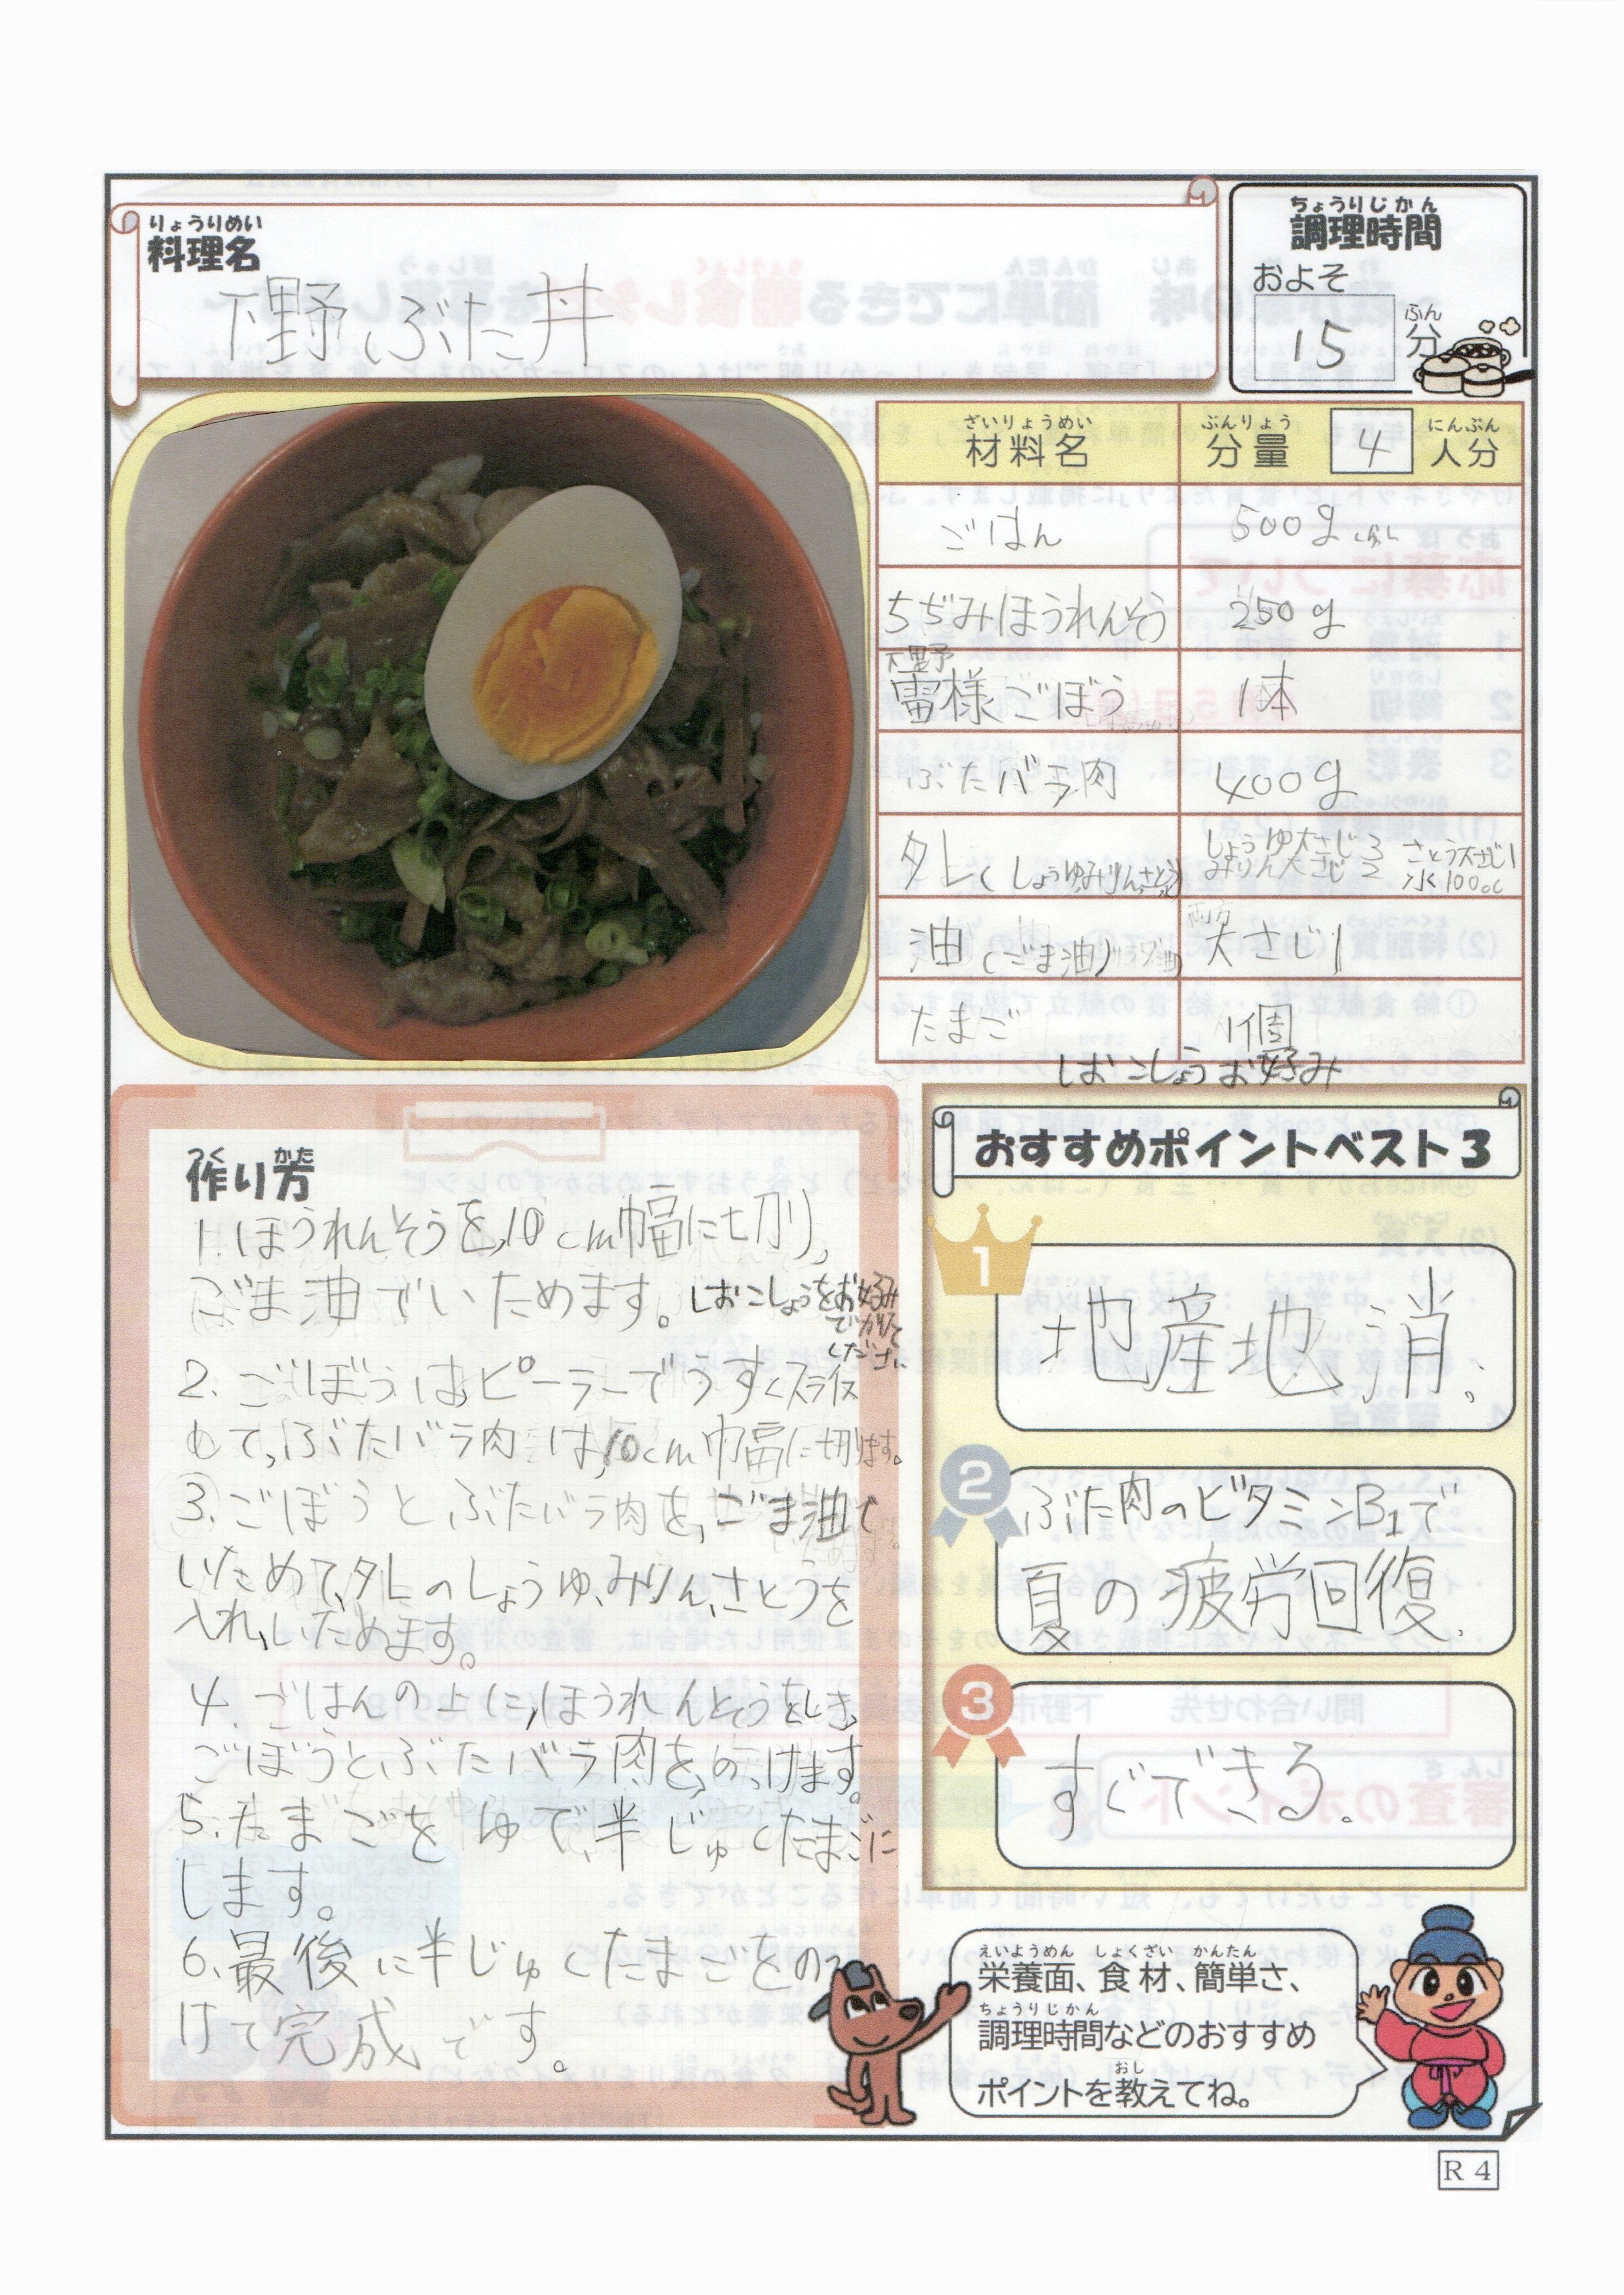 りょうりめい
料理名
下野ぶた丼
ちょうりじかん
調理時間
およそ
15 分
ふん
ざいりょうめい
材料名
ぶんりょう
分量 4 人分
にんぶん
ごはん 500g
ちぢみほうれんそう 250g
下野
雷様ごぼう 1本
ぶたバラ肉 400g
タレ(しょうゆみりん、さとう
しょうゆ大さじ3 さとう大さじ1
みりん大さじ2 水100cc
油(ごま油) 大さじ1
たまご 1個
しおこしょうお好み
つく かた
作り方
1.ほうれんそうを、10cm幅に切り、
ごま油でいためます。しおこしょうをお好み
でかけて
ください
2.ごぼうはピーラーでうすくスライス
して、ぶたバラ肉は、10cm巾幅に切ります。
3.ごぼうとぶたバラ肉を、ごま油で
いためて、タレのしょうゆ、みりん、さとうを
入れ、いためます。
4.ごはんの上に、ほうれんそうをしき、
ごぼうとぶたバラ肉を、のっけます。
5.たまごをゆで、半じゅくたまごに
します。
6.最後に半じゅくたまごをのっ
けて完成です。
おすすめポイントベスト3
1
地産地消。
2
ぶた肉のビタミンB1で
夏の疲労回復。
3
すぐできる。
えいようめん しょくざい かんたん
栄養面、食材、簡単さ、
ちょうりじかん
調理時間などのおすすめ
おし
ポイントを教えてね。
R4